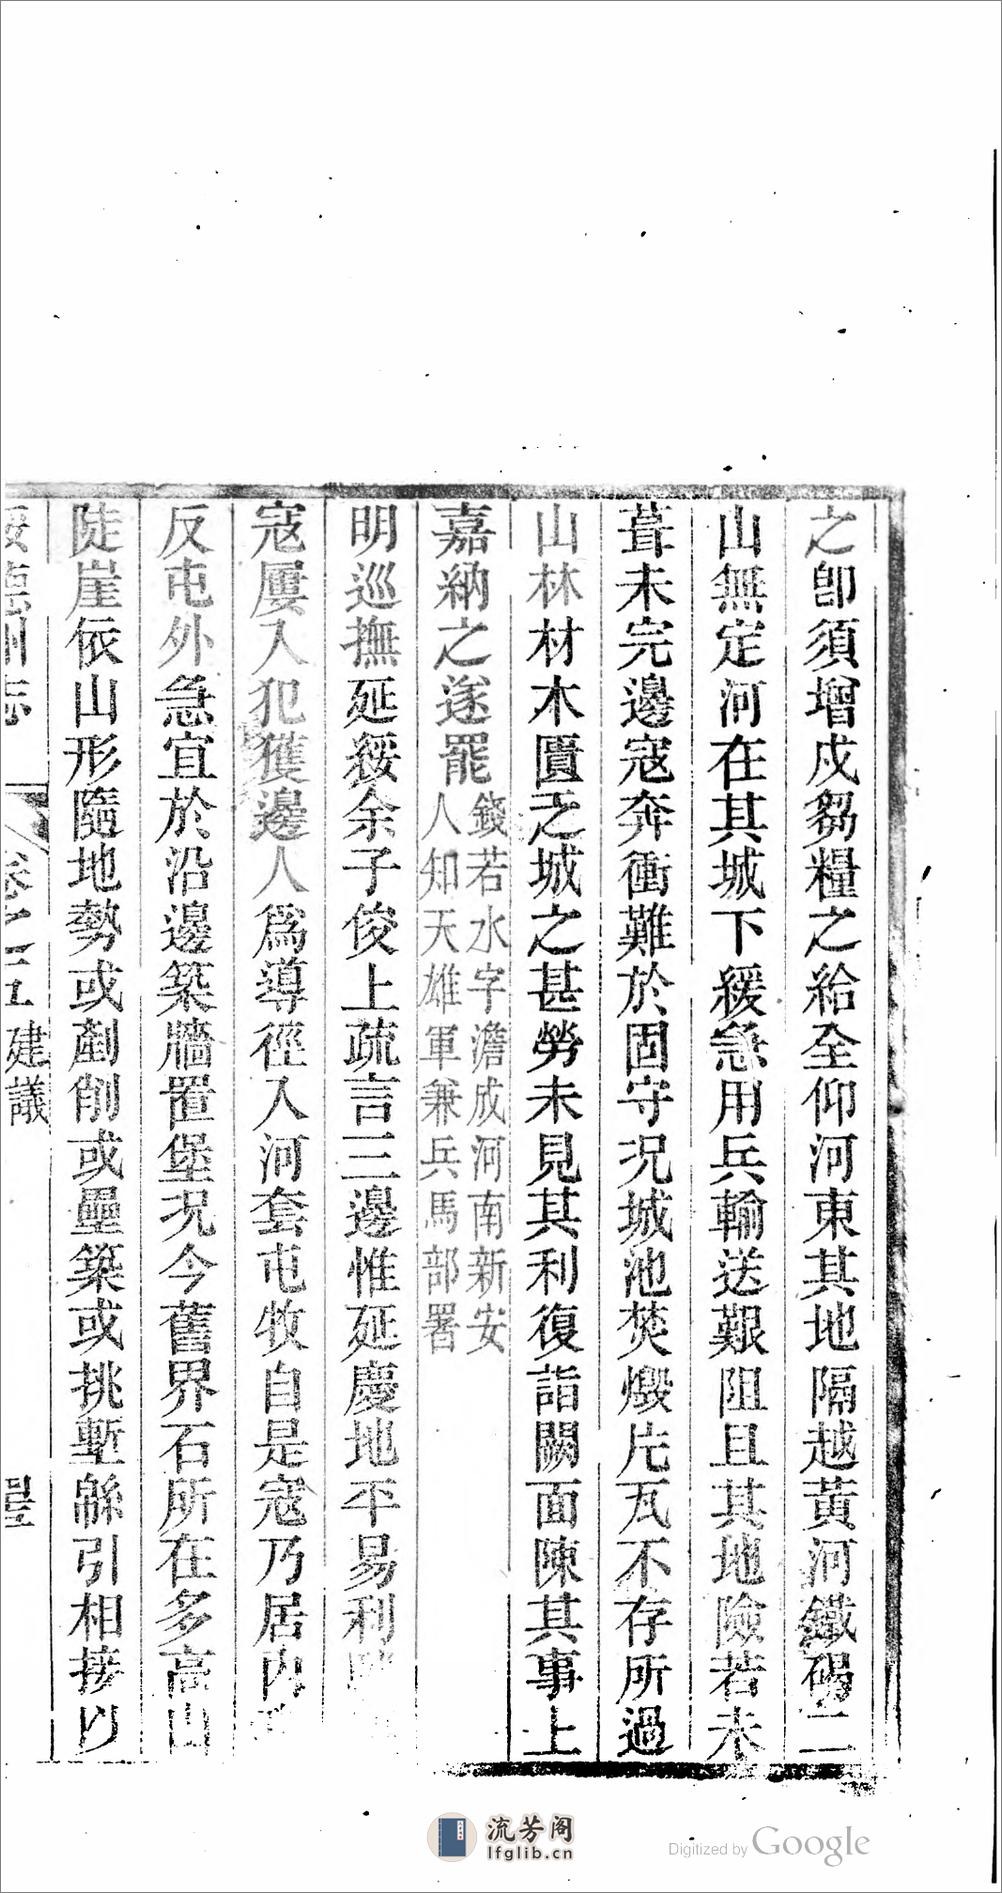 之卽須增戍芻糧之給全仰河東其地隔越黃河鐵碣二
山無定河在其城下緩急用兵輸送艱阻且其地險若未
葺未完邊寇奔衝難於固守況城池焚燬片瓦不存所過
山林材木匱乏城之甚勞未見其利復詣闕面陳其事上
嘉納之遂罷
錢若水字澹成河南新安
人知天雄軍兼兵馬部署
明巡撫延綏余子俊上疏言三邊惟延慶地平易利
寇屢入犯獲邊人爲導徑入河套屯牧自是寇乃居內
反屯外急宜於沿邊築牆置堡況今舊界石所在多高山
陡崖依山形隨地勢或剷削或壘築或挑塹綿引相接以
綏德州志 卷之五 建議
流芳阁
lfglib.cn
Digitized by Google